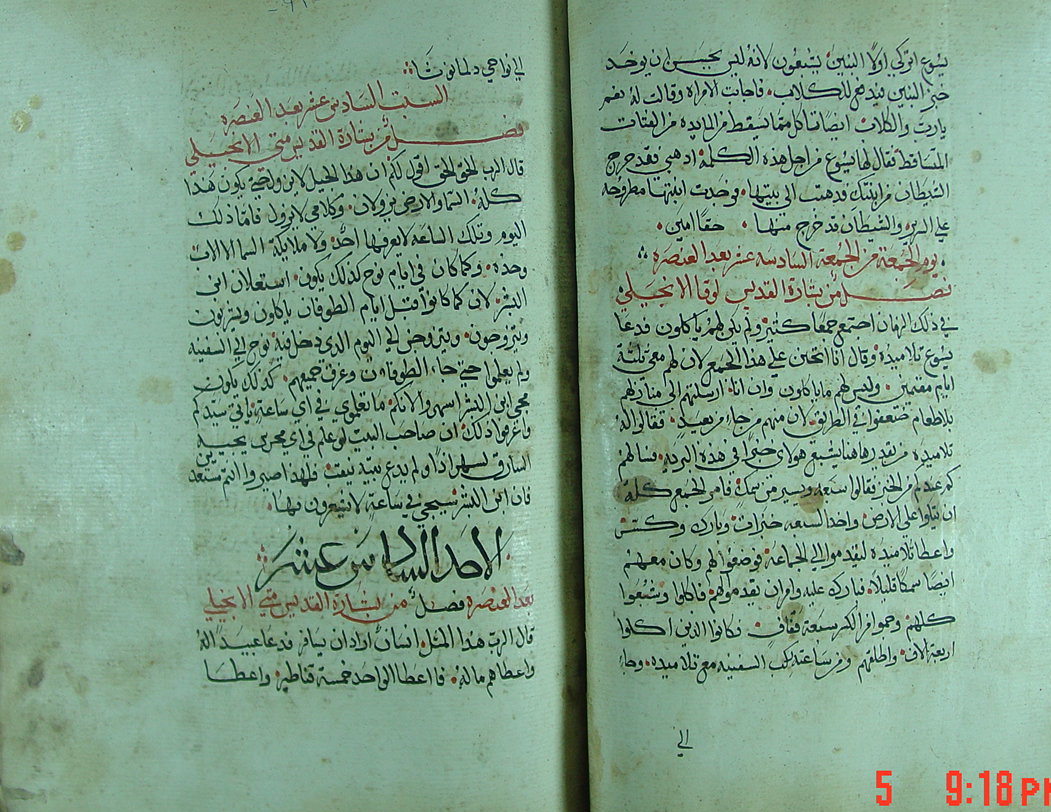 يسوع اتركي اولًا البنين يشبعون لانه ليس يحسن ان يوخد
خبز البنين فيدفع للكلاب. فاجابت الامراه وقالت له نعم
يارب والكلاب ايضًا تاكل مما يسقط من المايده من الفتات
المتساقط فقال لها يسوع من اجل هذه الكلمة اذهبي فقد خرج
الشيطان من ابنتك فدهبت الى بيتها. ووجدت ابنتها مطروحه
على السرير والشيطان قد خرج منها. حقًا امين.
يوم الجمعة من الجمعة السادسه عشر بعد العنصره
فصل من بشارة القديس لوقا الانجيلي
في ذلك الزمان اجتمع جمعًا كثير ولم يكن لهم ما ياكلون فدعا
يسوع تلاميذه وقال انا اتحنن على هذا الجمع لان لهم معي ثلثة
ايام مقيمين. وليس لهم ما ياكلون وان انا ارسلتهم الى منازلهم
بلا طعام ضعفوا في الطريق. لان منهم من جاء من بعيد. فقالوا له
تلاميذه من يقدر هاهنا يشبع هولاي خبزًا في هذه البريه فسالهم
كم عندكم من الخبز فقالوا سبعه ويسير من سمك فامر الجمع كله
ان يتكوا على الارض. واخذ السبعه خبزات وبارك وكسر
واعطا تلاميذه ليقدموا الى الجماعة فوضعوا لهم وكان معهم
ايضًا سمكًا قليلًا. فبارك عليه وامر ان يقدموا لهم فاكلوا وشبعوا
كلهم. وحملوا من الكسر سبعة قفاف. وكانوا الذين اكلوا
اربعة الاف. واطلقهم ومن ساعته ركب السفينه مع تلاميذه. وجا
الي
الي نواحي دلمانوثا
السبت السادس عشر بعد العنصره
فصل من بشارة القديس متى الانجيلي
قال الرب الحق الحق اقول لكم ان هذا الجيل لا يزول حتى يكون هذا
كله. السما والارض تزولان. وكلامي لا يزول فاما ذلك
اليوم وتلك الساعه لا يعرفها احدٌ. ولا ملايكة السما الا الاب
وحده. وكما كان في ايام نوح كذلك يكون. استعلان ابن
البشر. لان كما كانوا قبل ايام الطوفان ياكلون ويشربون
ويتزوجون. ويتزوجن الى اليوم الذي دخل فيه نوح الى السفينه
ولم يعلموا حتى جاء الطوفان وغرق جميعهم. كذلك يكون
مجي ابن البشر اسهروا لانكم ما تعلمون في اي ساعة. ياتي سيدكم
واعرفوا ذلك ان صاحب البيت لو علم في اي هجعه يجي
السارق لسهر اذًا ولم يدع بيته ينقب فلهذا اصيروا انتم مستعدين
فان ابن البشر سيجي في ساعة لا تشعرون فيها.
الاحد السادس عشر
بعد العنصره فصل من بشارة القديس متى الانجيلي
قال الرب هذا المثل. انسان اراد ان يسافر فدعا عبيد له
واعطاهم ماله. فاعطا الواحد خمسة قناطير واعطا